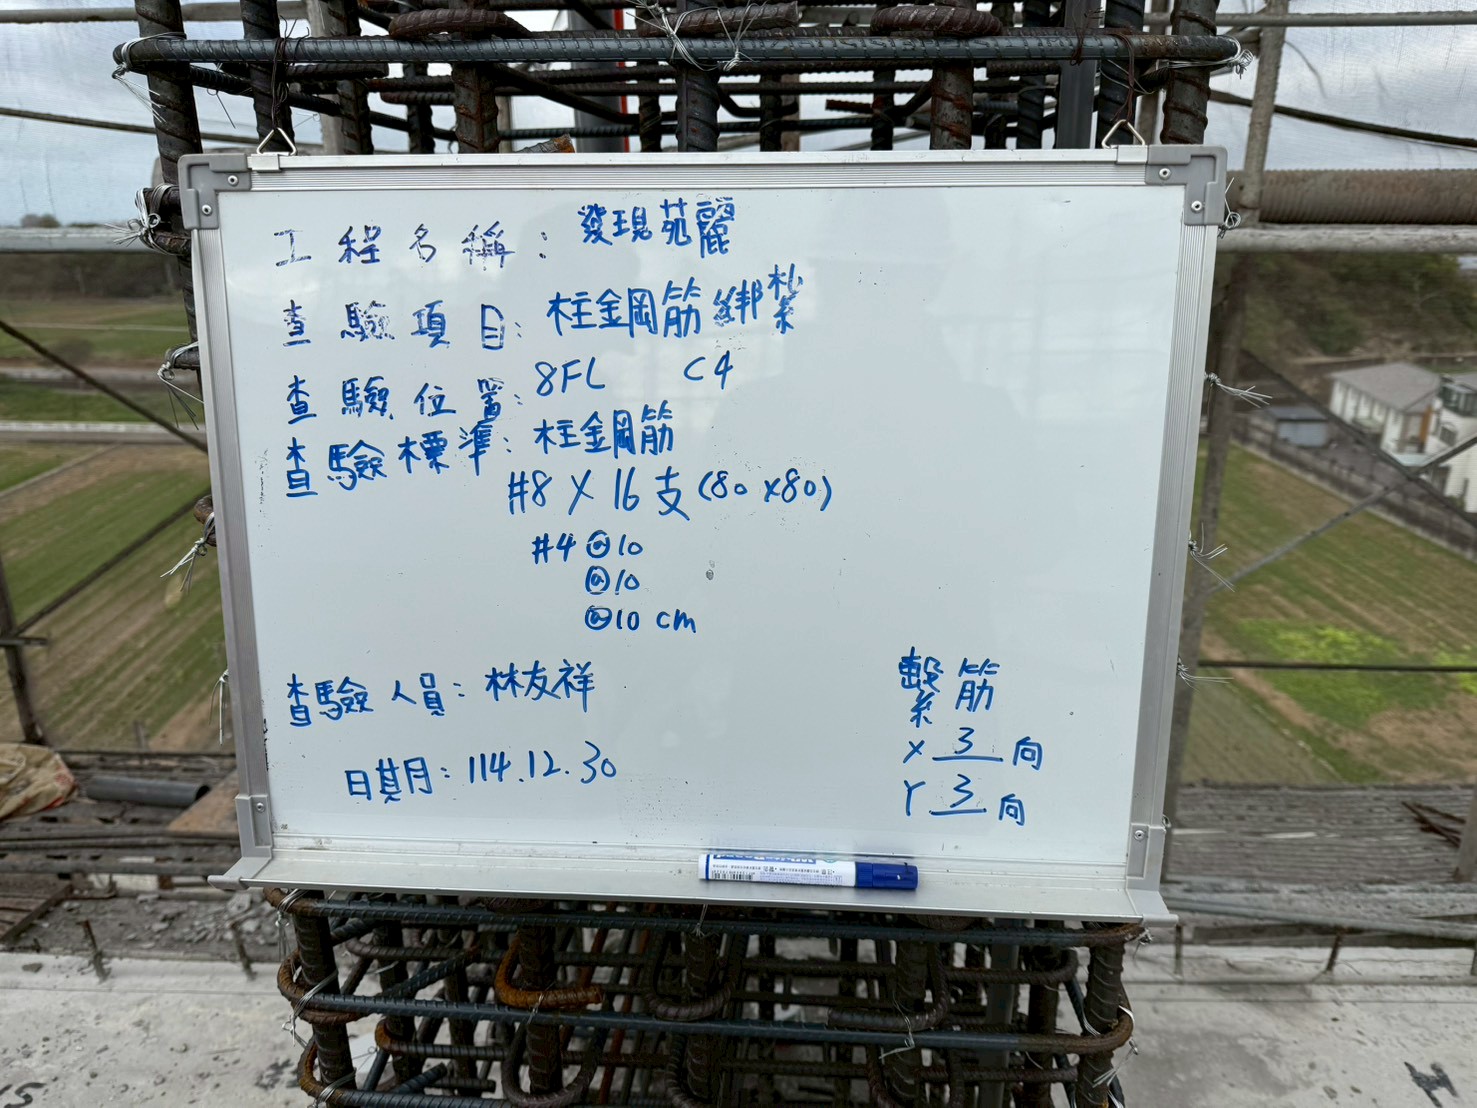 工程名稱：發現苑麗
查驗項目：柱鋼筋綁紮
查驗位置：8FL C4
查驗標準：柱鋼筋
#8 X 16支(80x80)
#4 @10
@10
@10 cm
查驗人員：林友祥
日期：114.12.30
繫筋
X 3 向
Y 3 向